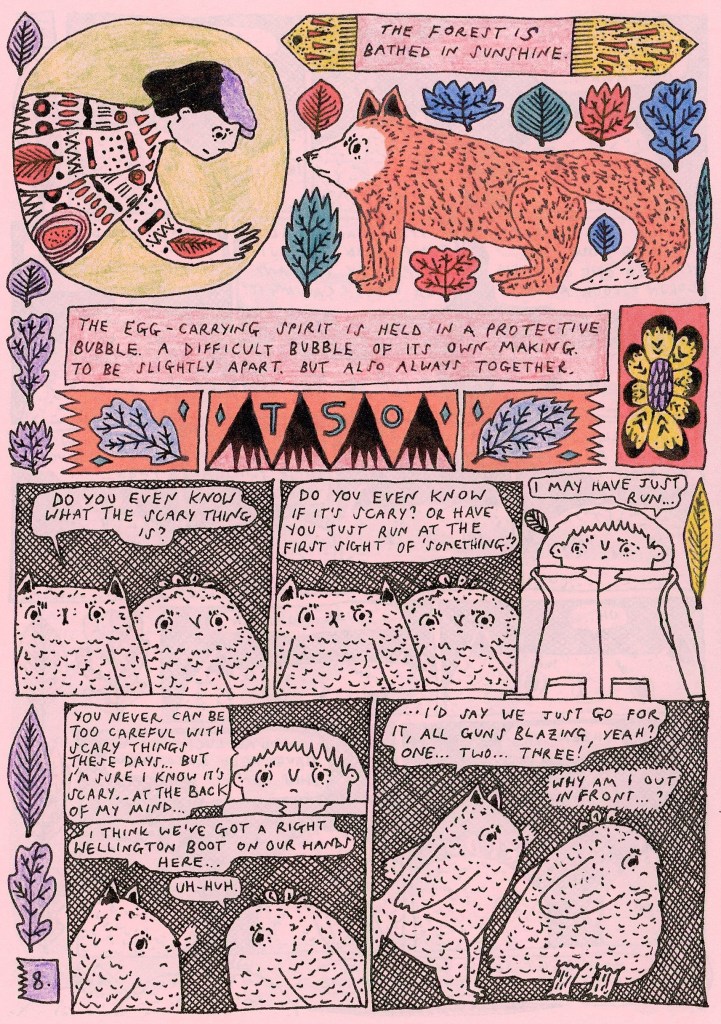 THE FOREST IS
BATHED IN SUNSHINE.
THE EGG-CARRYING SPIRIT IS HELD IN A PROTECTIVE
BUBBLE. A DIFFICULT BUBBLE OF ITS OWN MAKING.
TO BE SLIGHTLY APART. BUT ALSO ALWAYS TOGETHER.
TSO
DO YOU EVEN KNOW
WHAT THE SCARY THING
IS?
DO YOU EVEN KNOW
IF IT'S SCARY? OR HAVE
YOU JUST RUN AT THE
FIRST SIGHT OF 'SOMETHING'?
I MAY HAVE JUST
RUN...
YOU NEVER CAN BE
TOO CAREFUL WITH
SCARY THINGS
THESE DAYS... BUT
I'M SURE I KNOW IT'S
SCARY... AT THE BACK
OF MY MIND...
I THINK WE'VE GOT A RIGHT
WELLINGTON BOOT ON OUR HANDS
HERE...
UH-HUH.
...I'D SAY WE JUST GO FOR
IT, ALL GUNS BLAZING, YEAH?
ONE... TWO... THREE!'
WHY AM I OUT
IN FRONT...?
8.